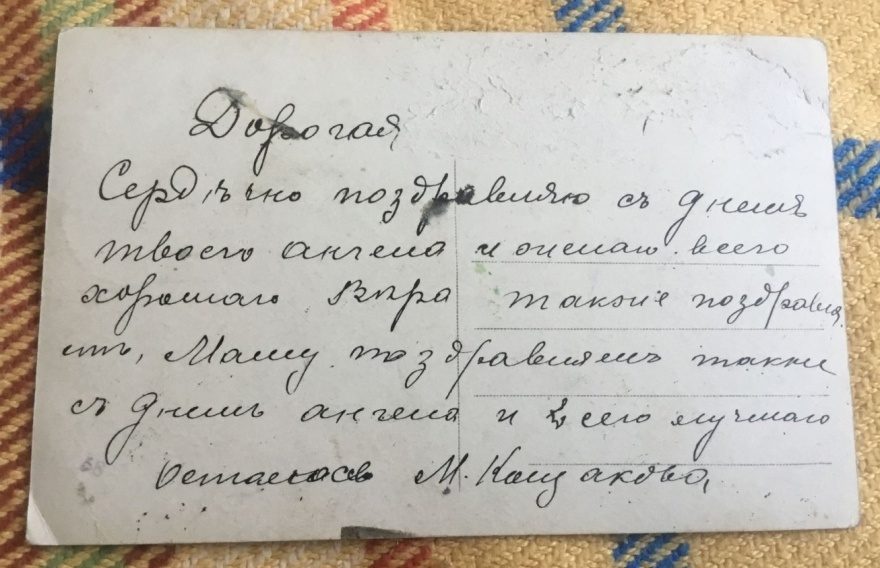 Дорогая
Сердѣчно поздравляю съ днемъ
твоего ангела и желаю всего
хорошаго Вѣра также поздравля
итъ, Машу поздравляемъ также
съ днемъ ангела и Всего лучшаго
Остаюсь М.